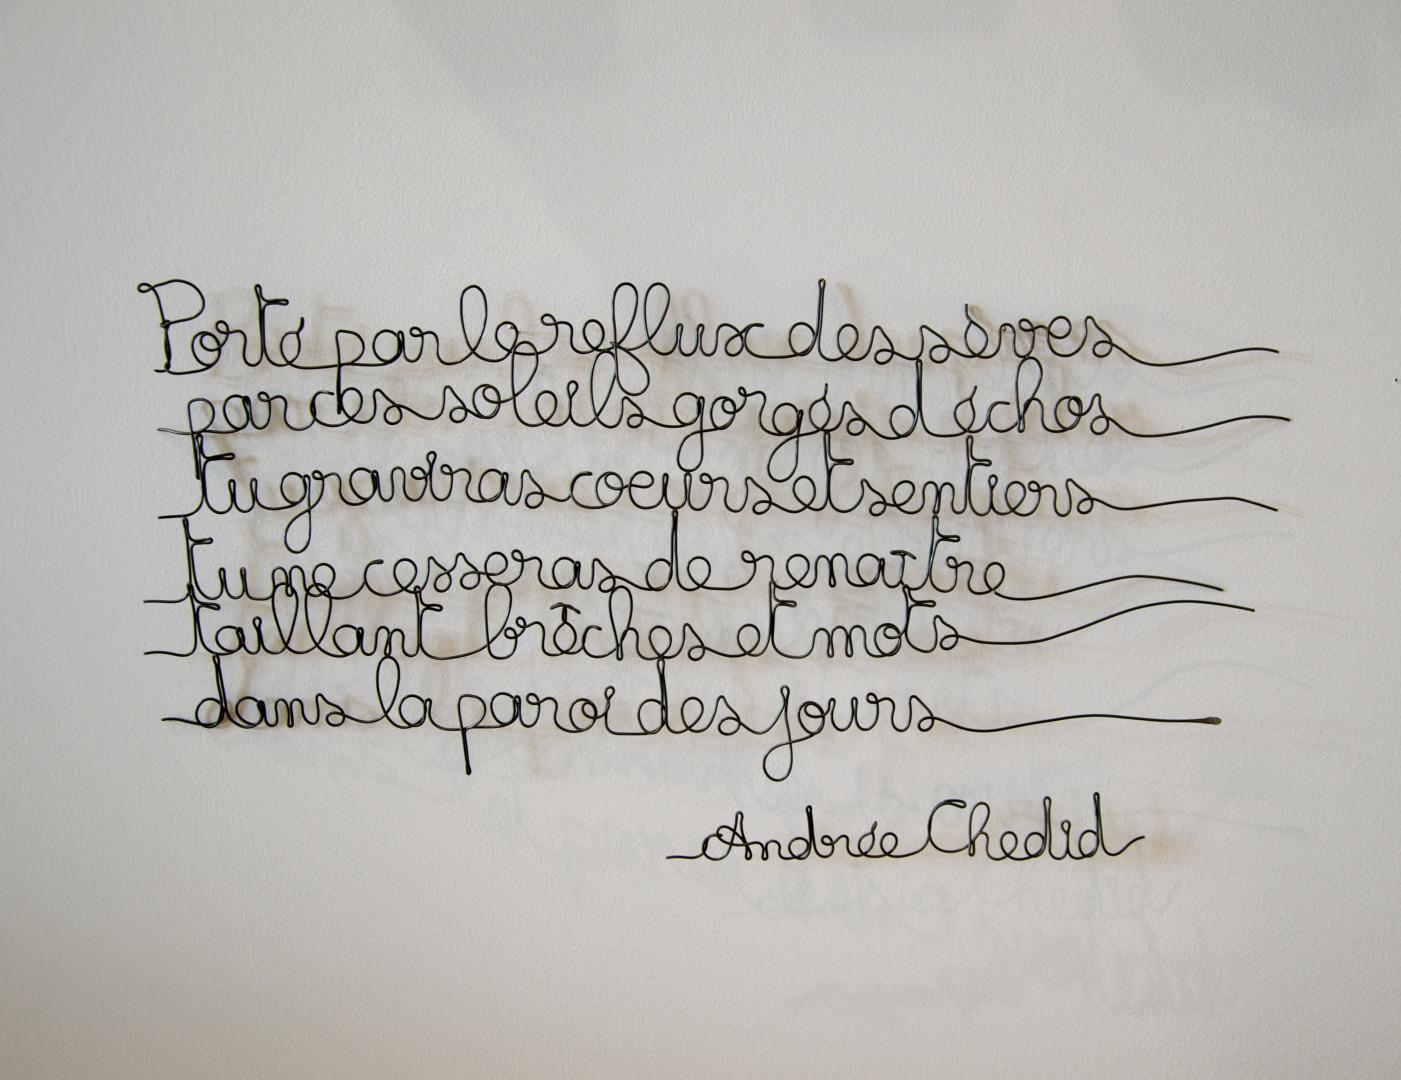 Porté par le reflux des sèves
par des soleils gorgés d'échos
tu graviras coeurs et sentiers
tu ne cesseras de renaître
taillant brèches et mots
dans la paroi des jours
Andrée Chedid